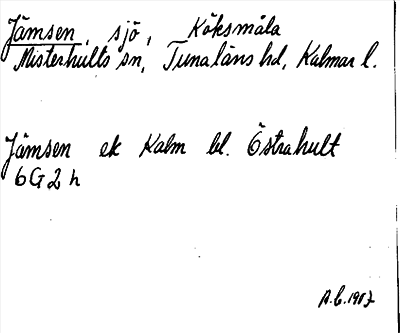 Jämsen, sjö, Köksmåla
Misterhults sn, Tunaläns hd, Kalmar l.
Jämsen ek Kalm bl. Östrahult
6G2h
A.C. 1987